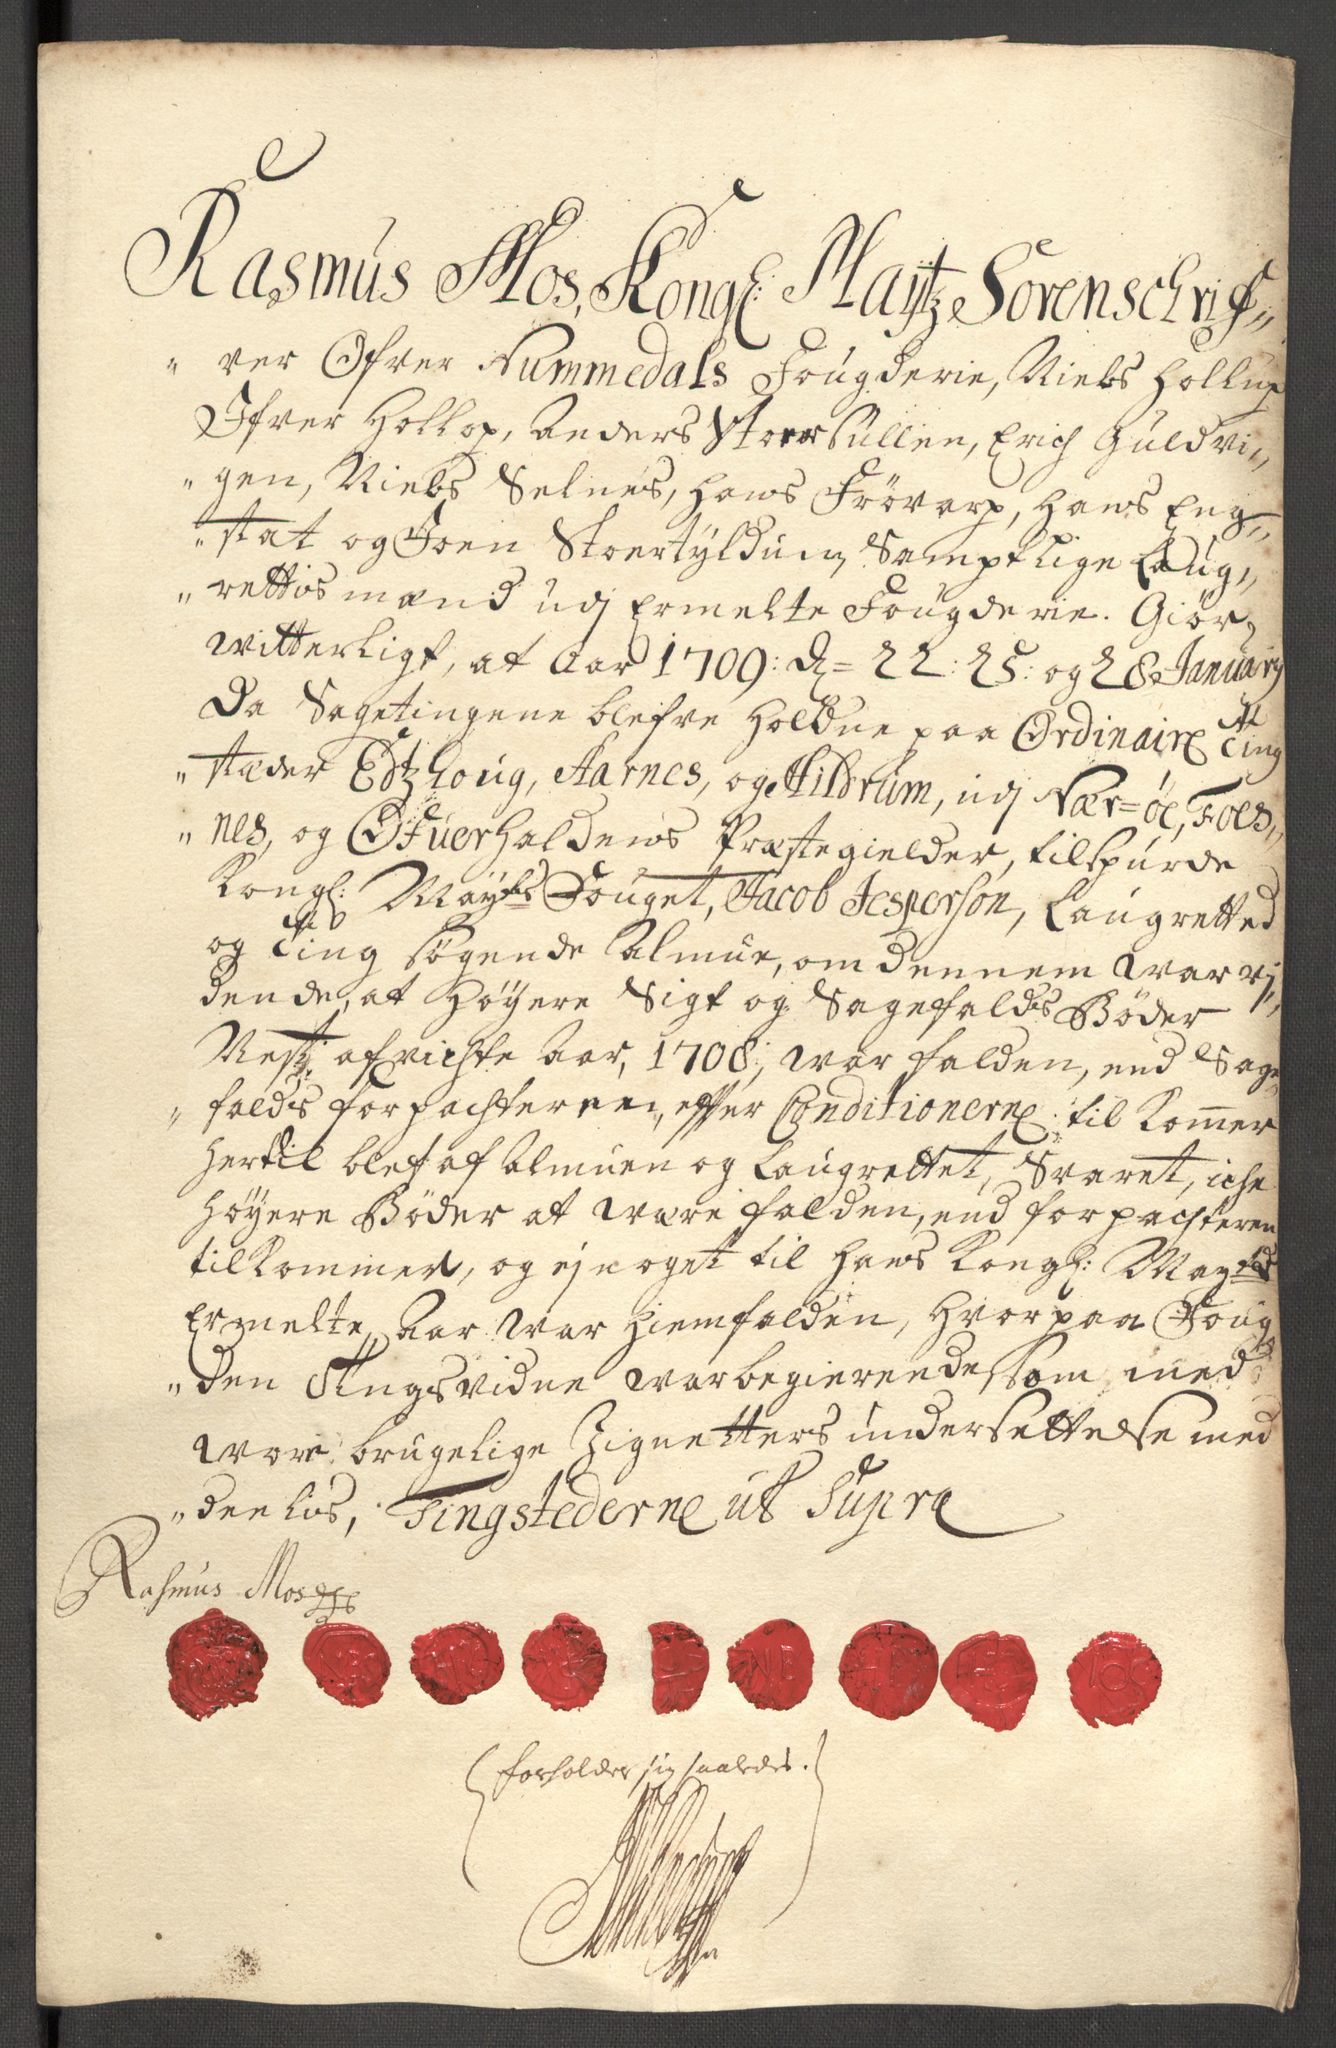 Rasmus Mos, Kongl: Maÿtz Sorenschrif„
„ ver Ofver Nummedals Fougderie, Niels Hollup
Ifver Hollop, Anders Stoersullen, Erich Guldvi„
„ gen, Niels Selnes, Hans Frövarp, Hans Eng„
„ stat og Joen Stoertyldum, Samptlige Laug„
„ rettis mænd udj Ermelte Fougderie. Giör
witterligt, at Aar 1709: d= 22: 25: og 28 Januarÿ
Da Sagetingene blefve holdne paa Ordinaire Ting
„ stæder Edtzhoug, Aarnes, og Hildrum, udj Nær=öe, Foes„
„ nes, og Ofuerhaldens Præstegielder, tilspurde
Kongl: Maÿtz Fouget, Jacob Jesperson, Laugretted
og Ting søgende Almue, om dennem war vj„
dende, at höÿere Sigt og Sagefalds Böder
Nest afvichte Aar, 1708, war falden, end Sage
„ falds forpachteren, effter Conditionerne til Kommer
hertil blef af Almuen og Laugrettet, Svaret, iche
höÿere Böder at være falden, end forpachteren
tilkommer, og ej noget til hans Kongl: Maÿtz
Ermelte Aar war hiemfalden, hvorpaa Foug
„ den Tingsvidne war begierende, som med
wore brugelige Zignetters undersettelse med
„ deelis, Tingstederne ut Supra
Rasmus Mos
NE
forholder sig saaledes.